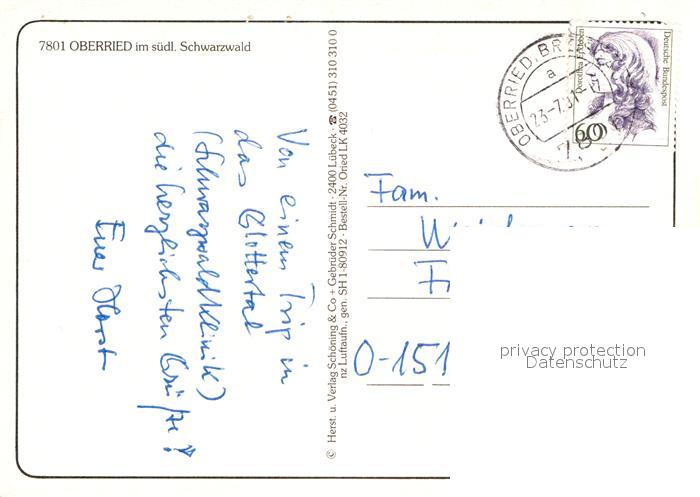 7801 OBERRIED im südl. Schwarzwald
Von einem Trip in
das Glottertal
(Schwarzwaldklinik)
die herzlichsten Grüße!
Euer Horst
© Herst. u. Verlag Schöning & Co + Gebrüder Schmidt · 2400 Lübeck · ☎ (0451) 310 310 0
nz Luftaufn., gen. SH 1-80912 · Bestell-Nr. Oried LK 4032
OBERRIED, BR
a
23.-7.91
78
Deutsche Bundespost
Dorothea Erxleben
60
Fam.
O-151
privacy protection
Datenschutz